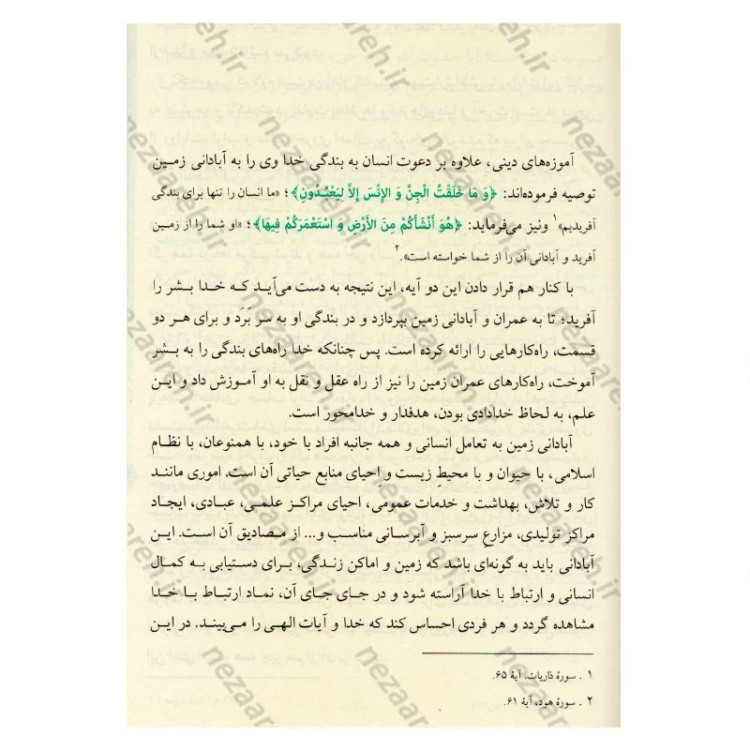 آموزه‌های دینی، علاوه بر دعوت انسان به بندگی خدا وی را به آبادانی زمین
توصیه فرموده‌اند: ﴿وَ مَا خَلَقْتُ الْجِنَّ وَ الإِنْسَ إِلاَّ لِيَعْبُدُونِ﴾؛ «ما انسان را تنها برای بندگی
آفریدیم»۱ ونیز می‌فرماید: ﴿هُوَ أَنْشَأَكُمْ مِنَ الأَرْضِ وَ اسْتَعْمَرَكُمْ فِيهَا﴾؛ «او شما را از زمین
آفرید و آبادانی آن را از شما خواسته است».۲
با کنار هم قرار دادن این دو آیه، این نتیجه به دست می‌آید که خدا بشر را
آفرید؛ تا به عمران و آبادانی زمین بپردازد و در بندگی او به سر برد و برای هر دو
قسمت، راه‌کارهایی را ارائه کرده است. پس چنانکه خدا راه‌های بندگی را به بشر
آموخت، راه‌کارهای عمران زمین را نیز از راه عقل و نقل به او آموزش داد و این
علم، به لحاظ خدادادی بودن، هدفدار و خدامحور است.
آبادانی زمین به تعامل انسانی و همه جانبه افراد با خود، با همنوعان، با نظام
اسلامی، با حیوان و با محیطِ زیست و اِحیای منابع حیاتی آن است. اموری مانند
کار و تلاش، بهداشت و خدمات عمومی، احیای مراکز علمی، عبادی، ایجاد
مراکز تولیدی، مزارعِ سرسبز و آبرسانی مناسب و... از مصادیق آن است. این
آبادانی باید به گونه‌ای باشد که زمین و اماکن زندگی، برای دستیابی به کمال
انسانی و ارتباط با خدا آراسته شود و در جای جای آن، نماد ارتباط با خدا
مشاهده گردد و هر فردی احساس کند که خدا و آیات الهی را می‌بیند. در این
۱ . سورهٔ ذاریات، آیهٔ ۶۵.
۲ . سورهٔ هود، آیهٔ ۶۱.
nezaareh.ir